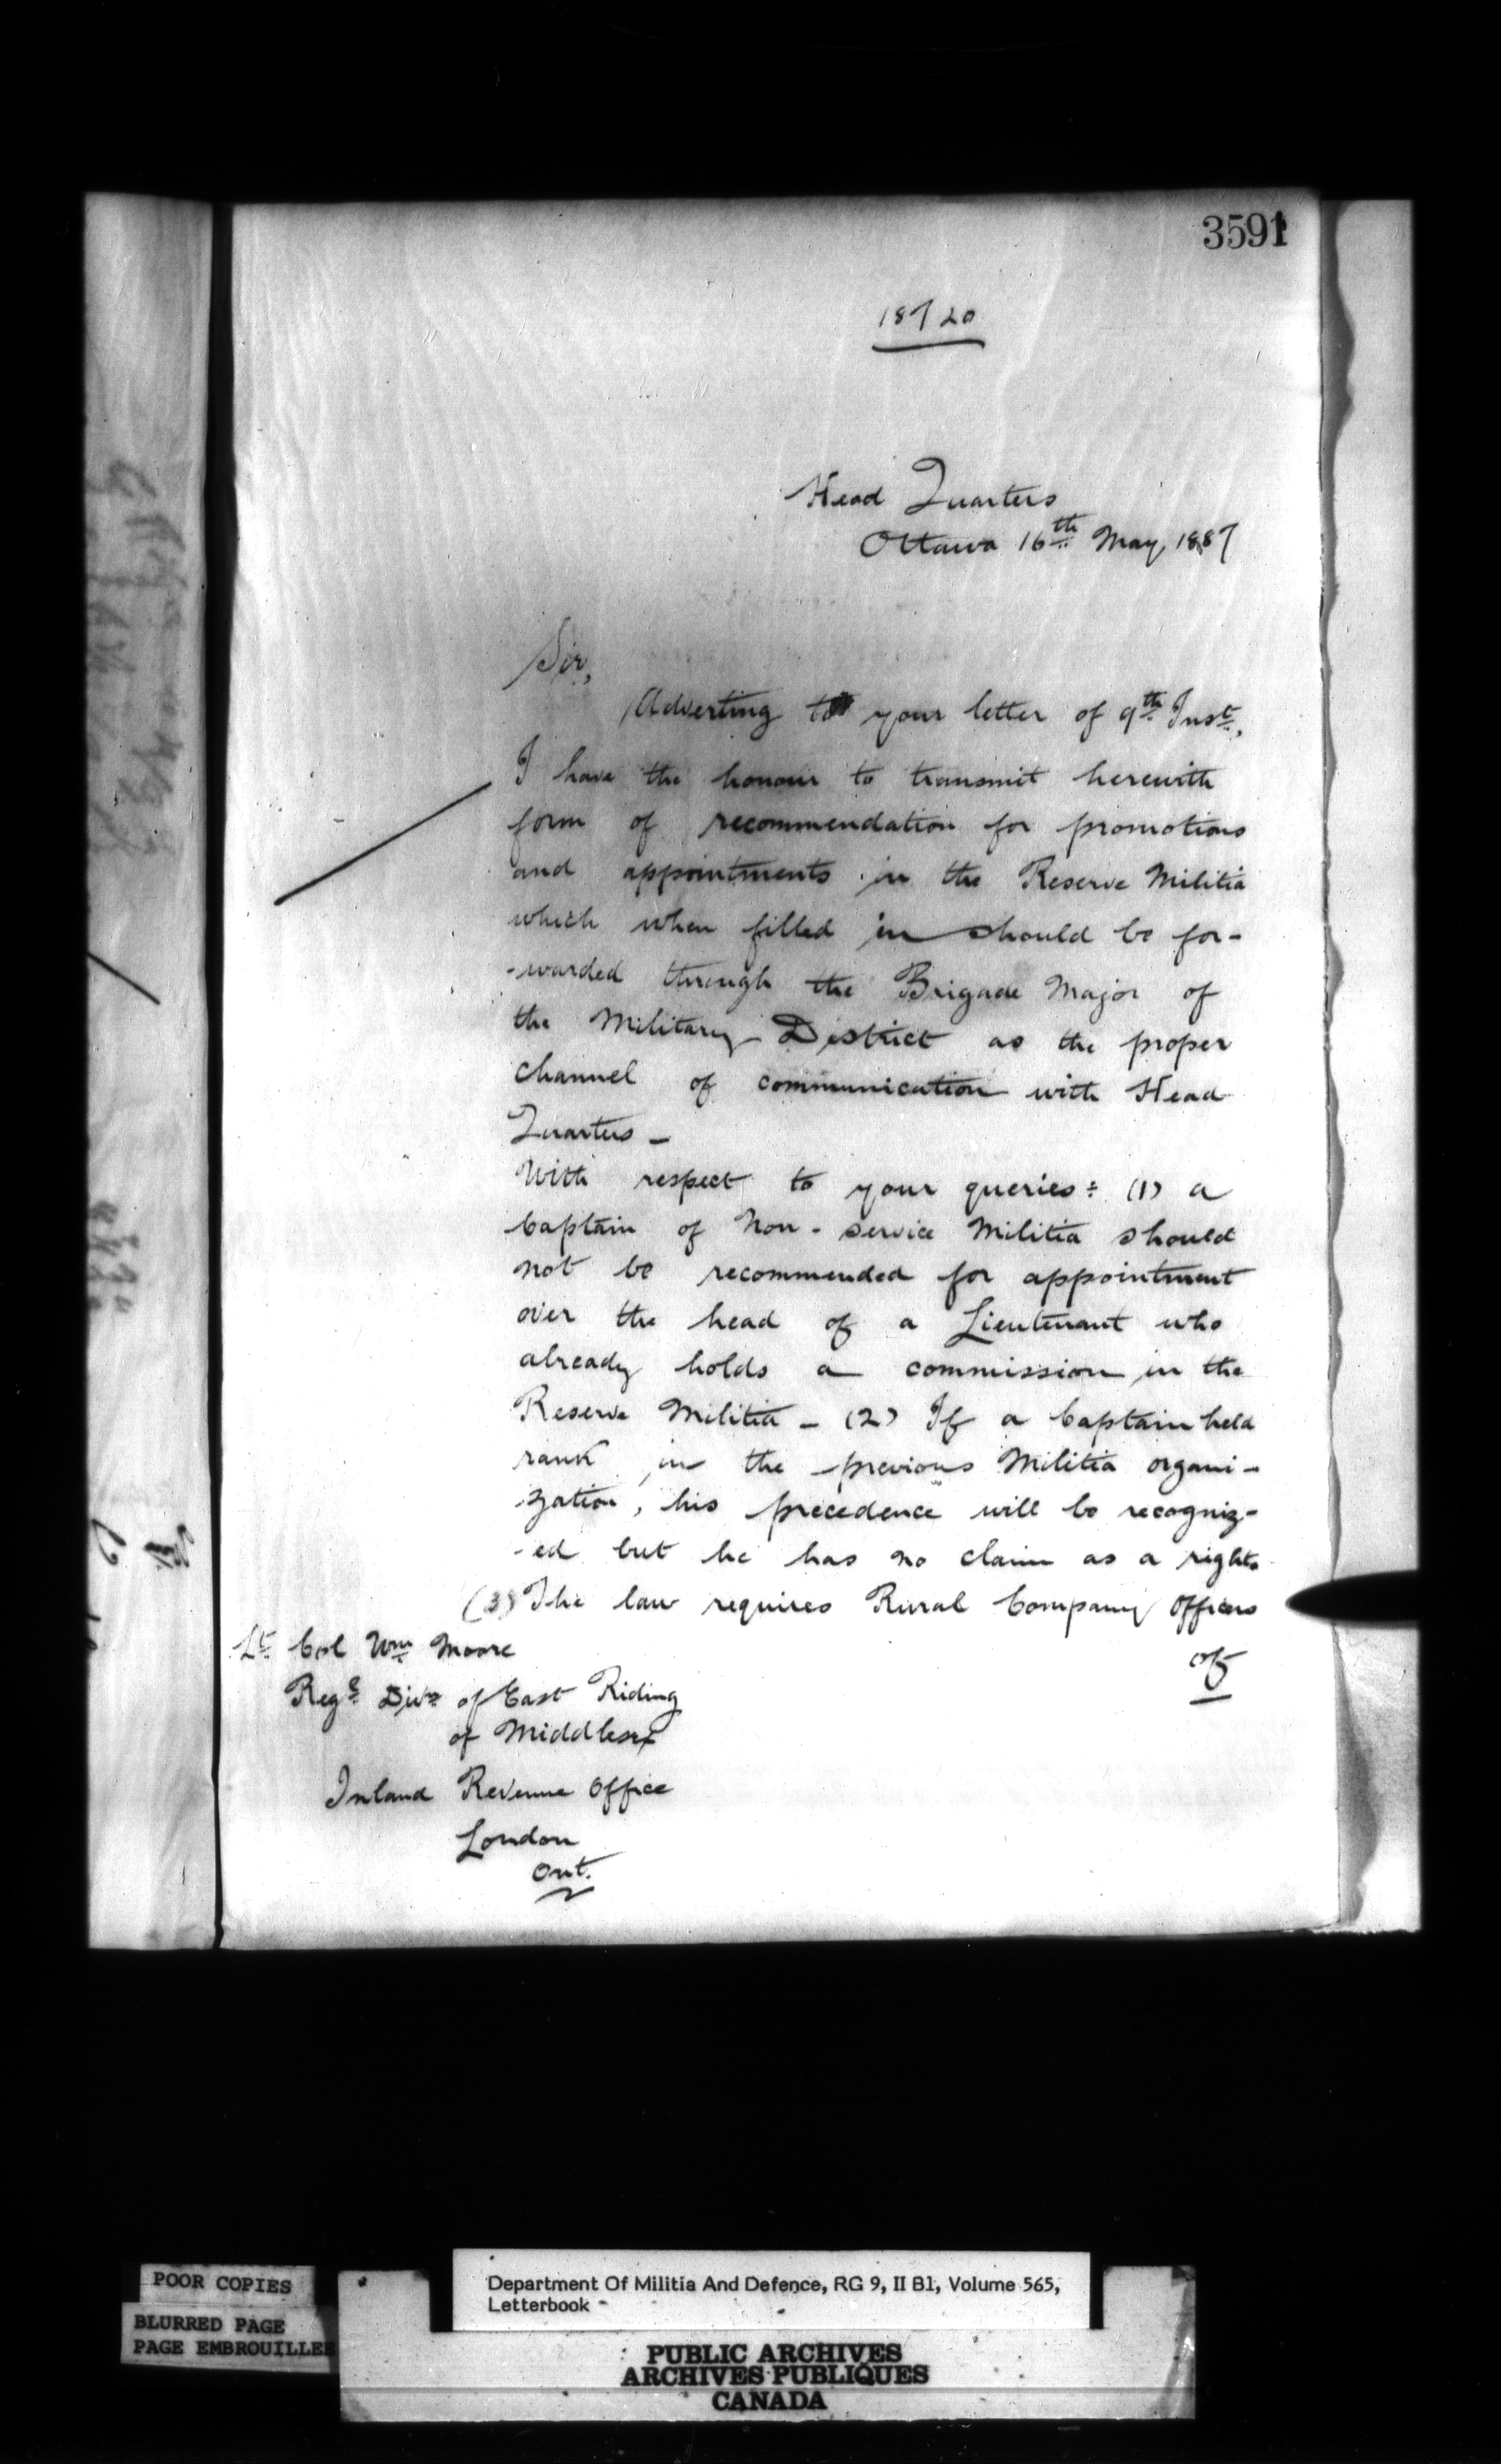 3591
18720
Head Quarters
Ottawa 16th May, 1887
Sir,
Adverting to your letter of 9th Inst,
I have the honour to transmit herewith
form of recommendation for promotions
and appointments in the Reserve Militia
which when filled in should be for-
-warded through the Brigade Major of
the Military District as the proper
channel of communication with Head
Quarters _
With respect to your queries: (1) a
Captain of Non-service Militia should
not be recommended for appointment
over the head of a Lieutenant who
already holds a commission in the
Reserve Militia - (2) If a Captain held
rank in the previous Militia organi-
zation, his precedence will be recogniz-
-ed but he has no claim as a right.
(3) The law requires Rural Company Officers
of
Lt Col Wm Moore
Regl Divn of East Riding
of Middlesex
Inland Revenue Office
London
Ont.
POOR COPIES
BLURRED PAGE
PAGE EMBROUILLEE
Department Of Militia And Defence, RG 9, II B1, Volume 565,
Letterbook
PUBLIC ARCHIVES
ARCHIVES PUBLIQUES
CANADA